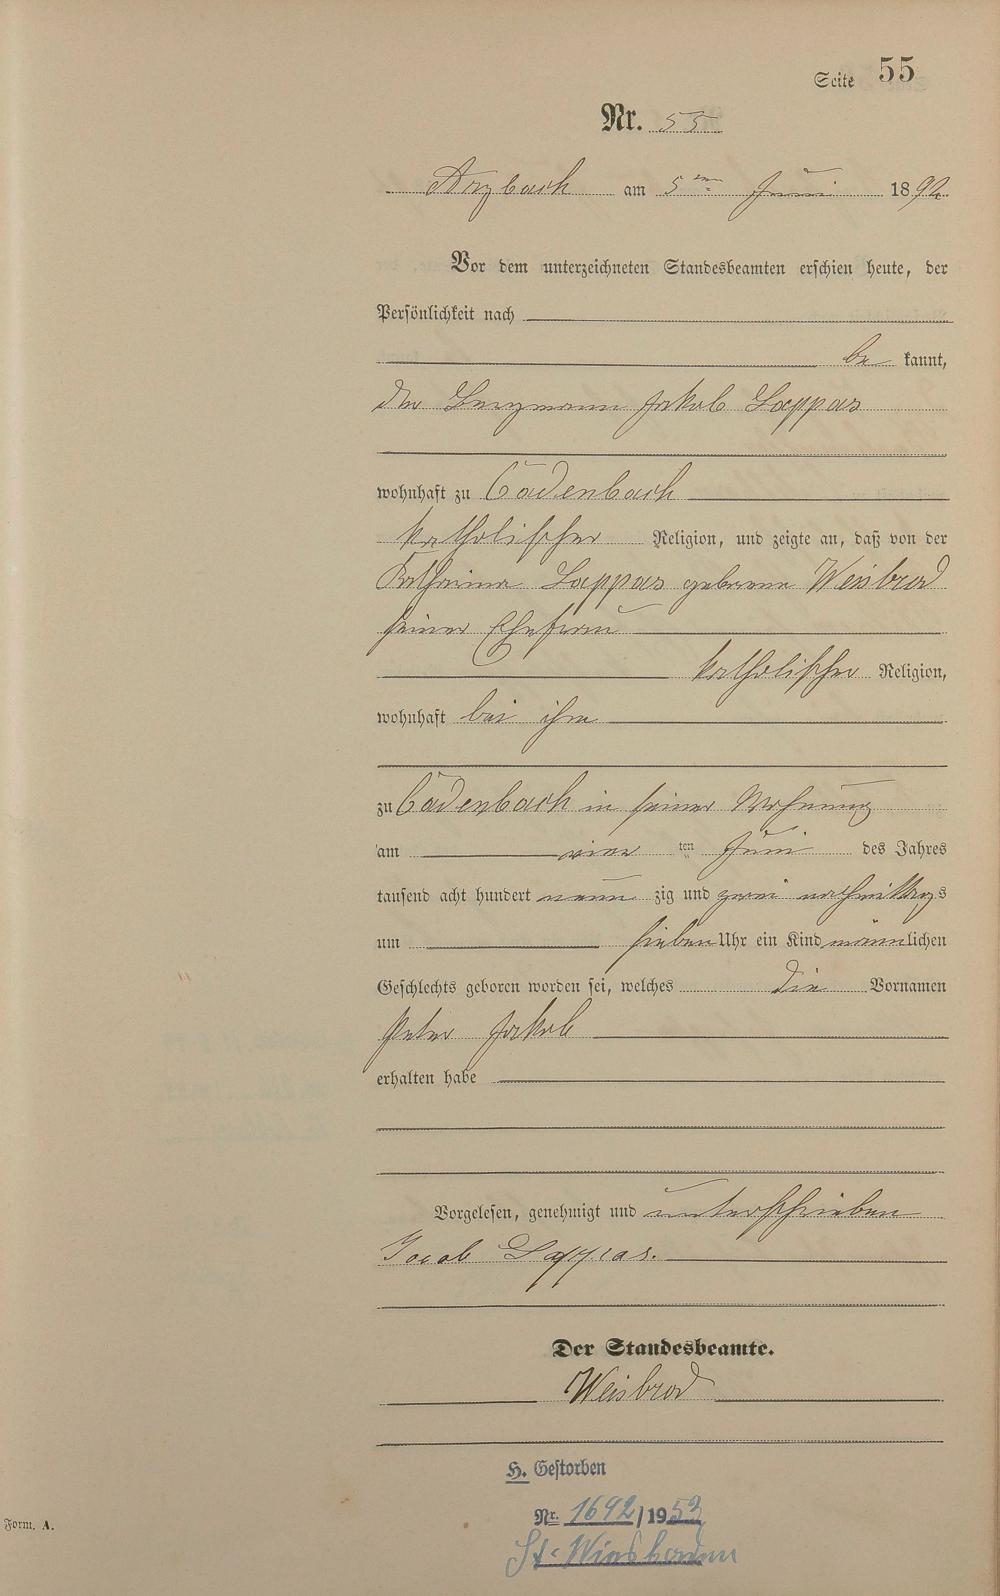 Seite 55
Nr. 55
Arzbach am 5ten Juni 1892
Vor dem unterzeichneten Standesbeamten erschien heute, der
Persönlichkeit nach
be kannt,
der Bergmann Jakob Lappas
wohnhaft zu Cadenbach
katholischer Religion, und zeigte an, daß von der
Katharina Lappas geborene Weisbrod
seiner Ehefrau
katholischer Religion,
wohnhaft bei ihm
zu Cadenbach in seiner Wohnung
am vier ten Juni des Jahres
tausend acht hundert neun zig und zwei nachmittags
um sieben Uhr ein Kind männlichen
Geschlechts geboren worden sei, welches die Vornamen
Peter Jakob
erhalten habe
Vorgelesen, genehmigt und unterschrieben
Jacob Lappas.
Der Standesbeamte.
Weisbrod
H. Gestorben
Nr. 1692/1952
St. Wiesbaden
Form. A.